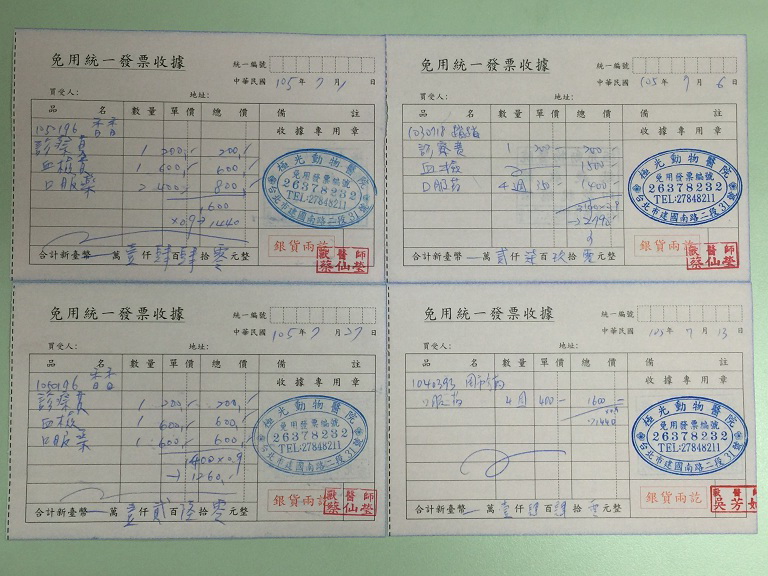 免用統一發票收據
統一編號
中華民國 105 年 7 月 1 日
買受人： 地址：
品 名 數量 單價 總 價 備 註
收據專用章
診察費 1 200 200
血檢費 1 600 600
口服藥 2 400 800
1600
×0.9 1440
極光動物醫院
免用發票編號
26378232
TEL:27848211
台北市建國南路二段31號
銀貨兩訖
獸醫師
蔡仙瑩
合計新臺幣 萬 壹 仟 肆 百 肆 拾 零 元整
免用統一發票收據
統一編號
中華民國 105 年 7 月 6 日
買受人： 地址：
品 名 數量 單價 總 價 備 註
收據專用章
診察費 1 200
血檢 1500
口服药 4週 350 1400
極光動物醫院
免用發票編號
26378232
TEL:27848211
台北市建國南路二段31號
銀貨兩訖
獸醫師
蔡仙瑩
合計新臺幣 萬 貳 仟 柒 百 玖 拾 零 元整
免用統一發票收據
統一編號
中華民國 105 年 7 月 27 日
買受人： 地址：
品 名 數量 單價 總 價 備 註
收據專用章
診察費 1 200 200
血檢 1 600 600
口服藥 1 600 600
1400×0.9
→1260
極光動物醫院
免用發票編號
26378232
TEL:27848211
台北市建國南路二段31號
銀貨兩訖
獸醫師
蔡仙瑩
合計新臺幣 萬 壹 仟 貳 百 陸 拾 零 元整
免用統一發票收據
統一編號
中華民國 105 年 7 月 13 日
買受人： 地址：
品 名 數量 單價 總 價 備 註
收據專用章
1040393
口服药 4週 400 1600
→1440
極光動物醫院
免用發票編號
26378232
TEL:27848211
台北市建國南路二段31號
銀貨兩訖
獸醫師
吳芳
合計新臺幣 萬 壹 仟 肆 百 肆 拾 零 元整